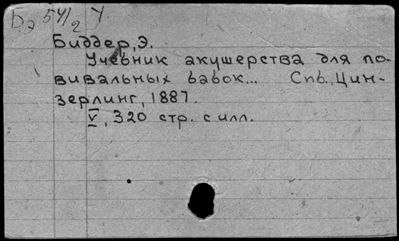 Бэ 54/2 У
Биддер, Э.
Учебник акушерства для по-
вивальных бабок... Спб., Цин-
зерлинг, 1887.
V, 320 стр. с илл.